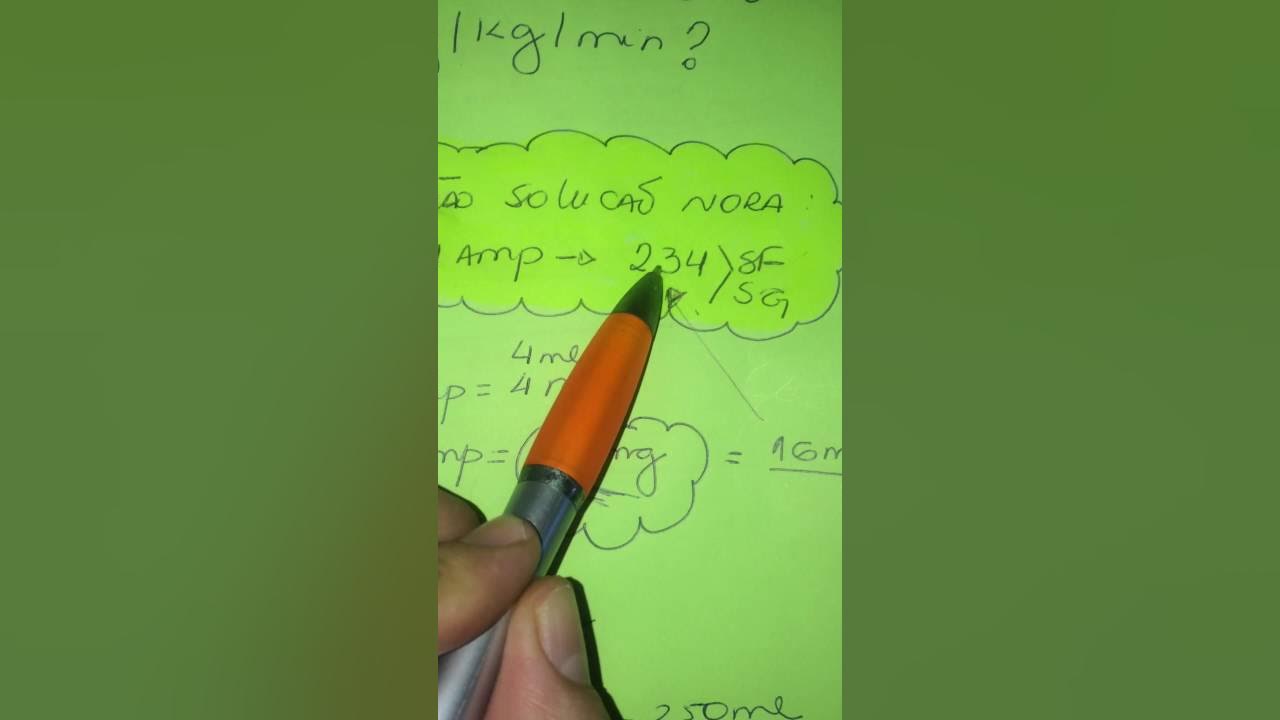 /kg/min?
ÃO SOLUCAÕ NORA:
AMP → 234 > SF
SG
4 ml
p = 4
mp = mg = 16m
250ml